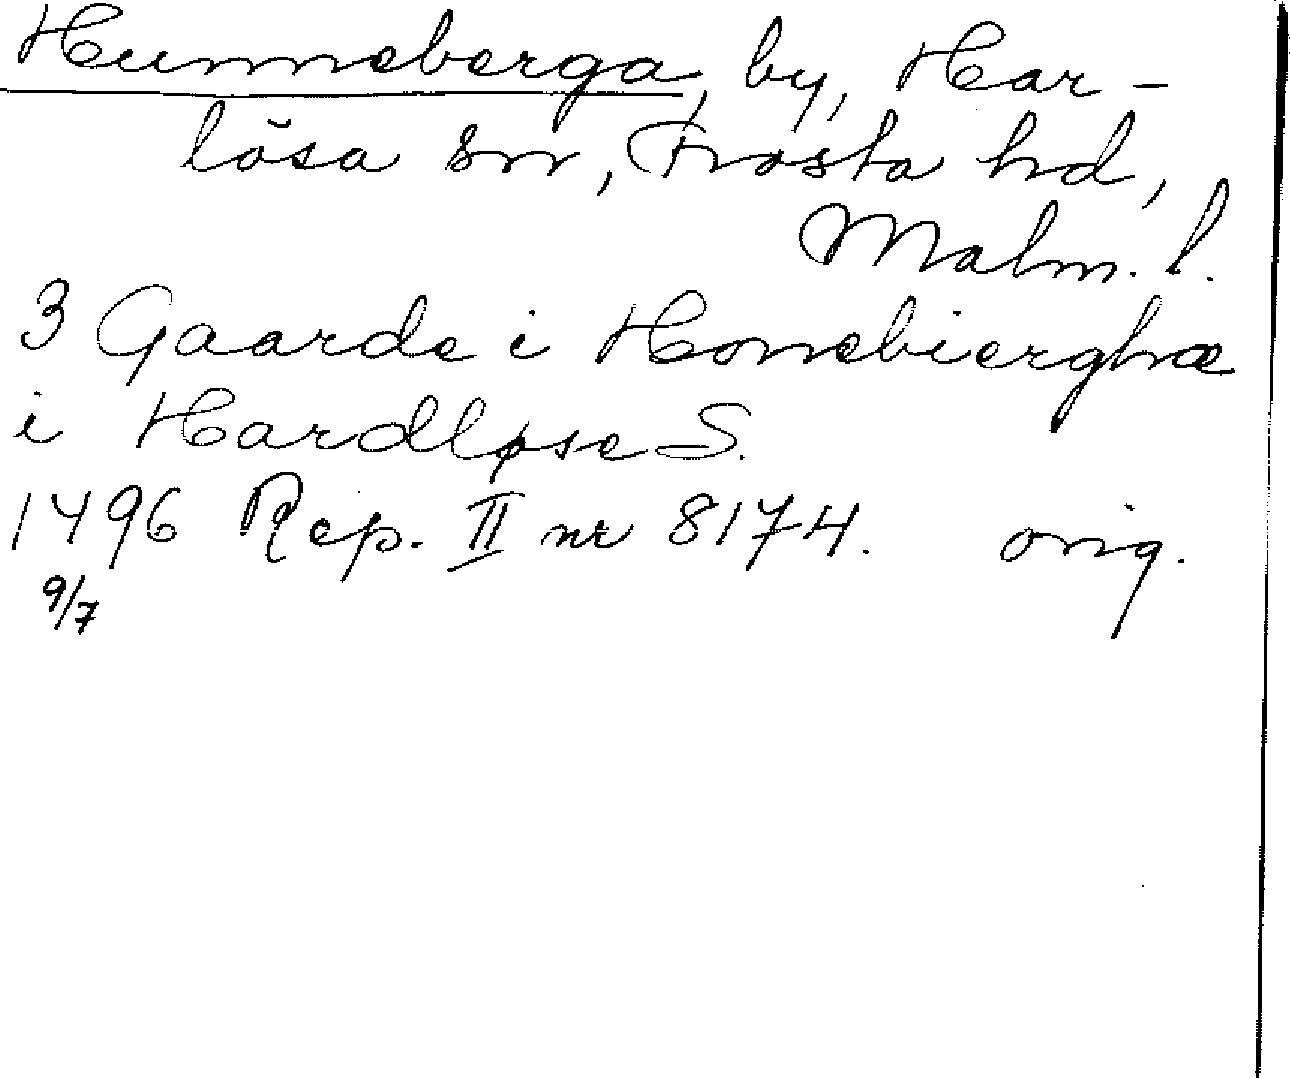 Hunneberga, by, Har-
lösa sn, Frosta hd,
Malm. l.
3 Gaarde i Honebierghæ
i Hardløse S.
1496 Rep. II nr 8174. orig.
9/7